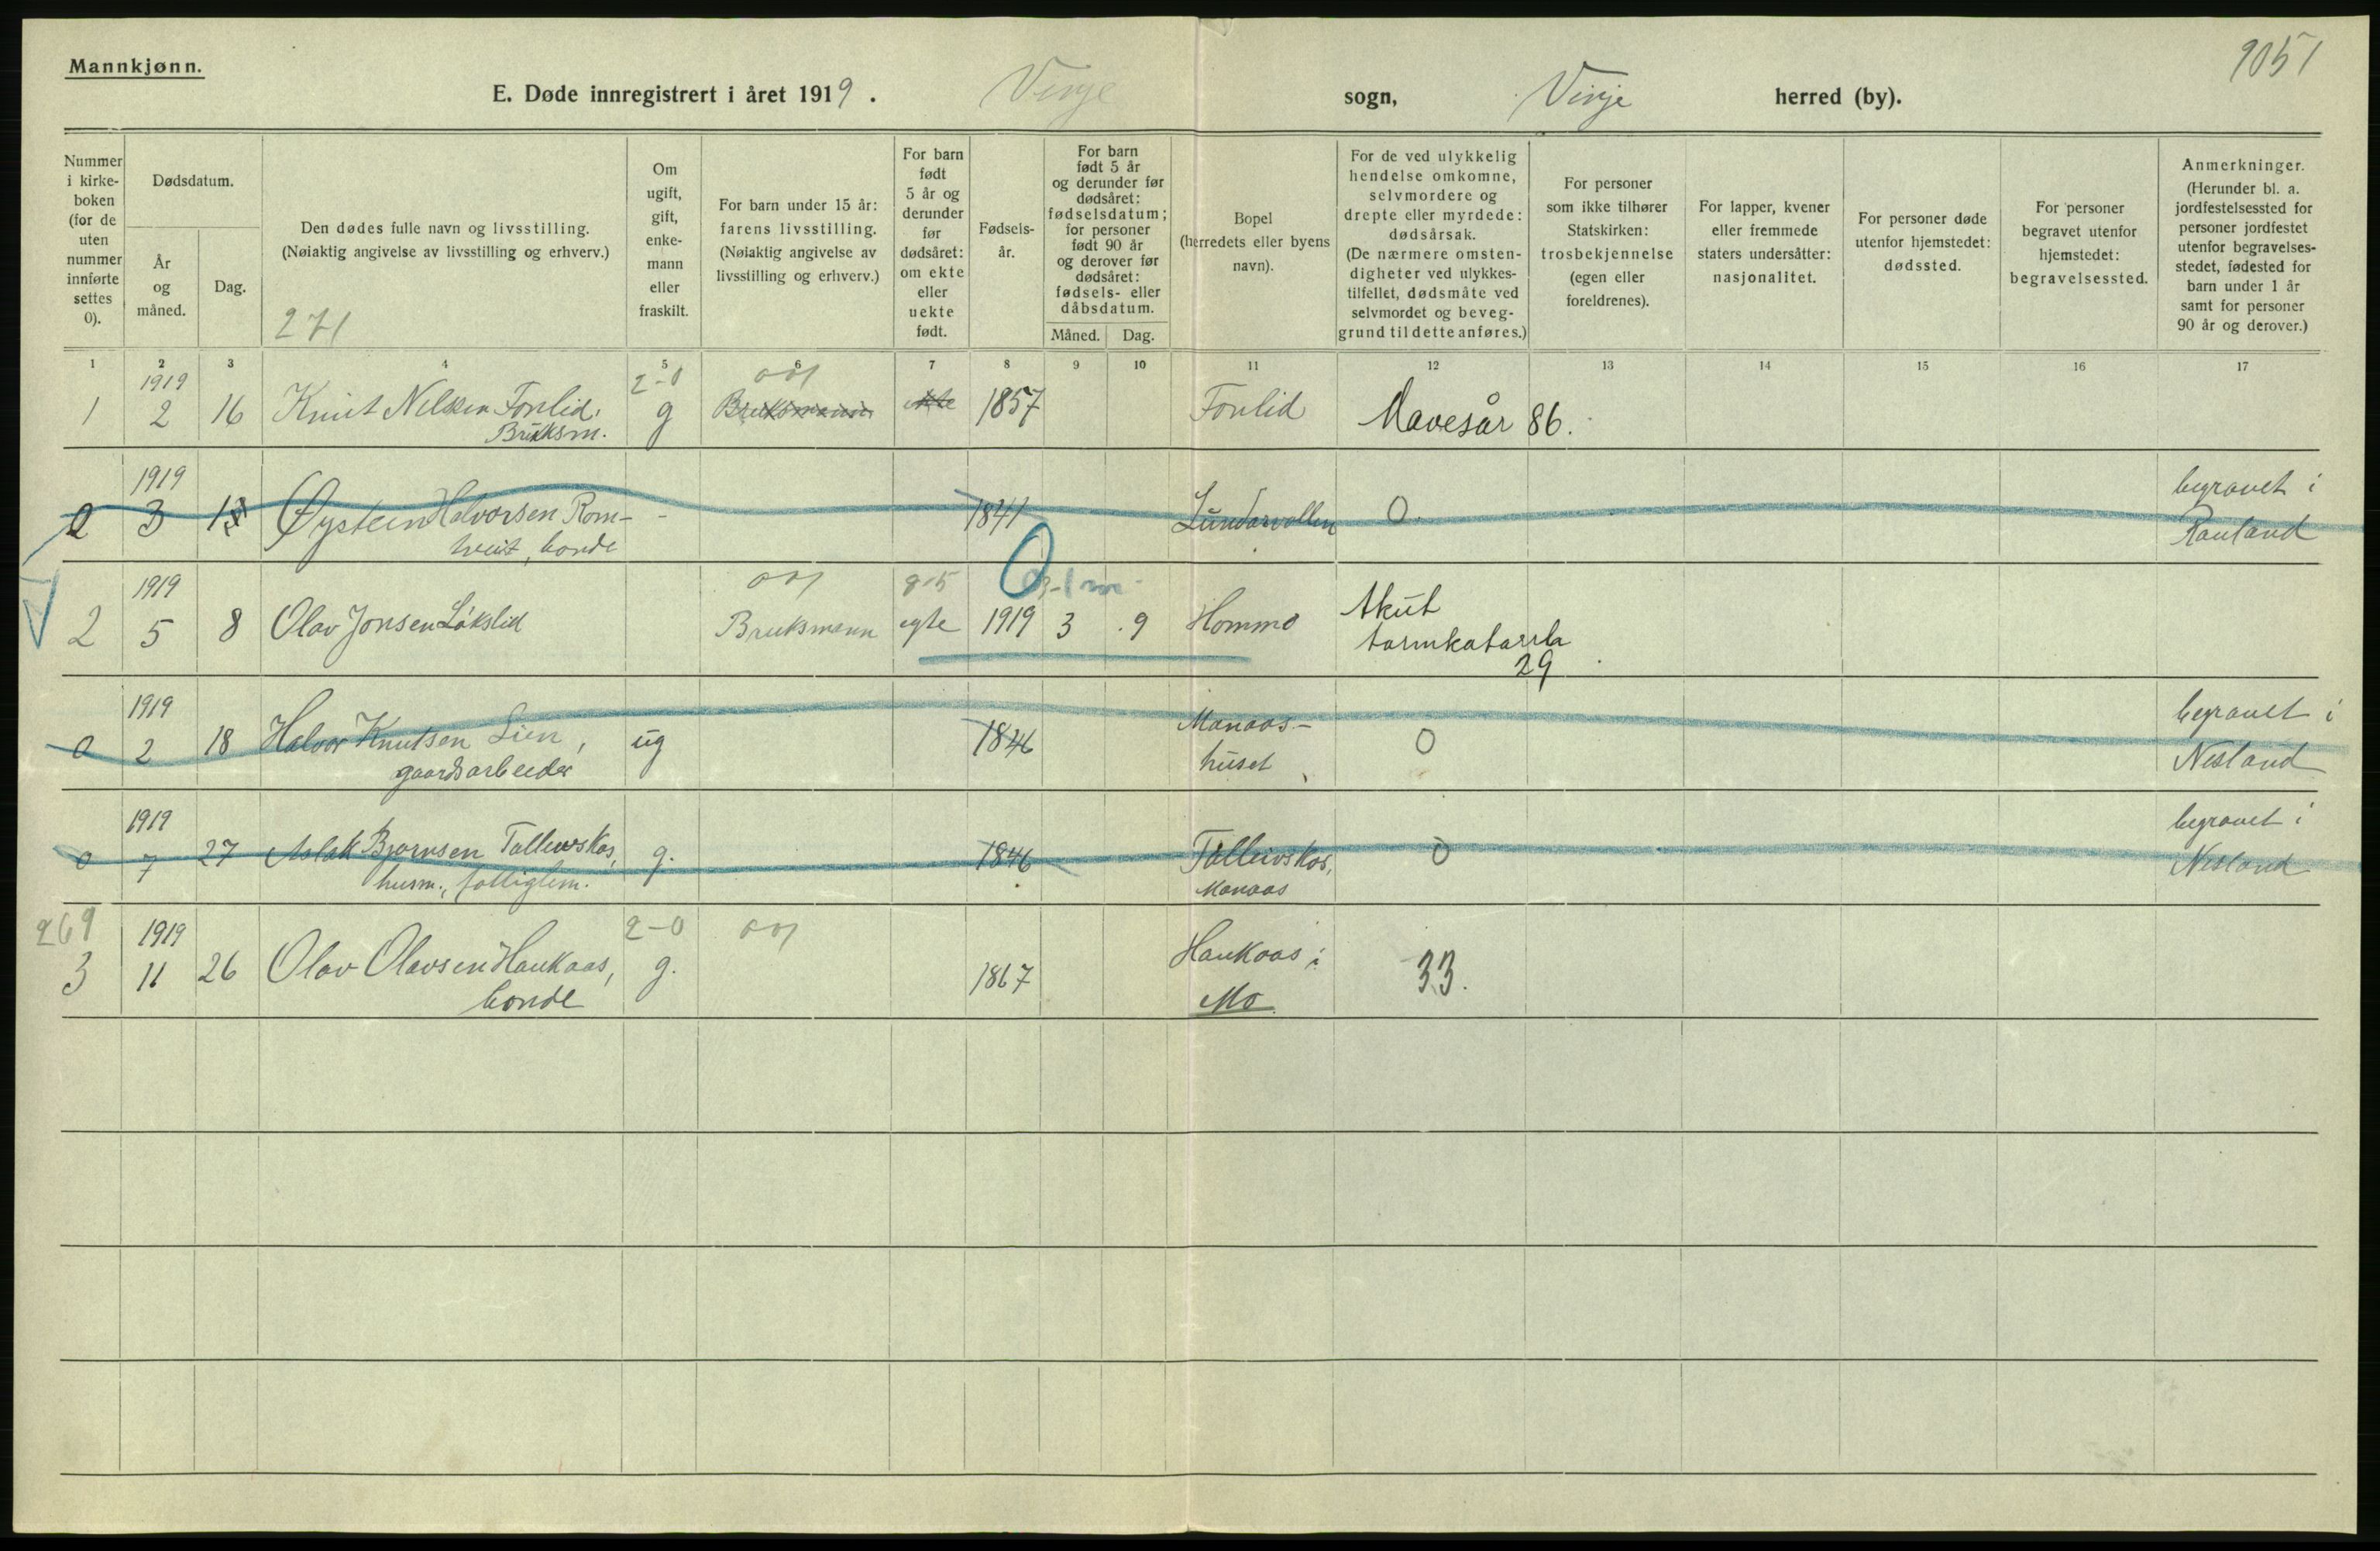 Mannkjønn.
9051
E. Døde innregistrert i året 1919. Vinje sogn, Vinje herred (by).
Nummer i kirke-boken (for de uten nummer innførte settes 0).
Dødsdatum.
År og måned.
Dag.
Den dødes fulle navn og livsstilling.
(Nøiaktig angivelse av livsstilling og erhverv.)
271
Om ugift, gift, enke-mann eller fraskilt.
For barn under 15 år: farens livsstilling.
(Nøiaktig angivelse av livsstilling og erhverv.)
For barn født 5 år og derunder før dødsåret: om ekte eller uekte født.
Fødsels-år.
For barn født 5 år og derunder før dødsåret: fødselsdatum; for personer født 90 år og derover før dødsåret: fødsels- eller dåbsdatum.
Måned. Dag.
Bopel (herredets eller byens navn).
For de ved ulykkelig hendelse omkomne, selvmordere og drepte eller myrdede: dødsårsak.
(De nærmere omsten-digheter ved ulykkes-tilfellet, dødsmåte ved selvmordet og beveg-grund til dette anføres.)
For personer som ikke tilhører Statskirken: trosbekjennelse (egen eller foreldrenes).
For lapper, kvener eller fremmede staters undersåtter: nasjonalitet.
For personer døde utenfor hjemstedet: dødssted.
For personer begravet utenfor hjemstedet: begravelsessted.
Anmerkninger.
(Herunder bl. a. jordfestelsessted for personer jordfestet utenfor begravelses-stedet, fødested for barn under 1 år samt for personer 90 år og derover.)
1 2 3 4 5 6 7 8 9 10 11 12 13 14 15 16 17
1919 2-0
1 2 16 Knut Nelsen Fonlid. g Bruksmann ekte 1857 Fonlid Mavesår 86.
Bruksm.
1919 begravet i
0 3 Øystein Halvorsen Rom- - 1841 Lundarvollen 0. Rauland
tveit, bonde
1919 Akut
2 5 8 Olav Jonsen Lókslid Bruksmann egte 1919 3 9 Hommo tarmkatarrh
29
1919 Manaas- begravet i
0 2 18 Halvor Knutsen Lien, ug 1846 huset 0 Nesland
gaardsarbeider
1919 begravet i
0 7 27 Aslak Bjørnsen Talleivskas, g. 1846 Talleivskos, 0 Nesland
husm., fattiglem. Manaas
269 1919 2-0 Haukaas i
3 11 26 Olav Olavsen Haukaas, g. 1867 Mo 33.
bonde